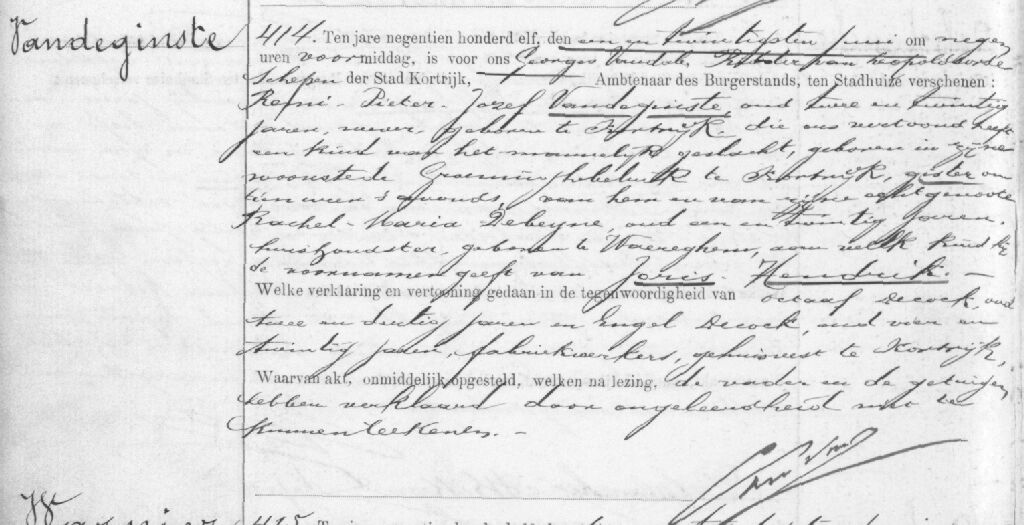 Vandeginste
414. Ten jare negentien honderd elf, den een en twintigsten juni om negen
uren voormiddag, is voor ons Georges Ridder van Leopoldsorde
Schepen der Stad Kortrijk, Ambtenaar des Burgerstands, ten Stadhuize verschenen :
Remi-Pieter-Jozef Vandeginste oud twee en twintig
jaren, wever, geboren te Kortrijk, die ons vertoond heeft
een kind van het mannelijk geslacht, geboren in zijne
woonstede te Kortrijk, gister om
tien uren 's avonds, van hem en van zijne echtgenoote
Rachel-Maria Debeyne, oud een en twintig jaren,
huishoudster, geboren te Waereghem, aan welk kind hij
de voornamen geeft van Joris-Hendrik.-
Welke verklaring en vertooning gedaan in de tegenwoordigheid van Octaaf Decock, oud
twee en dertig jaren en Engel Decock, oud vier en
twintig jaren, fabriekwerkers, gehuisvest te Kortrijk,
Waarvan akt, onmiddelijk opgesteld, welken na lezing, de vader en de getuigen
hebben verklaard door ongeleerdheid niet te
kunnen teekenen.-
415. Ten jare negentien honderd elf